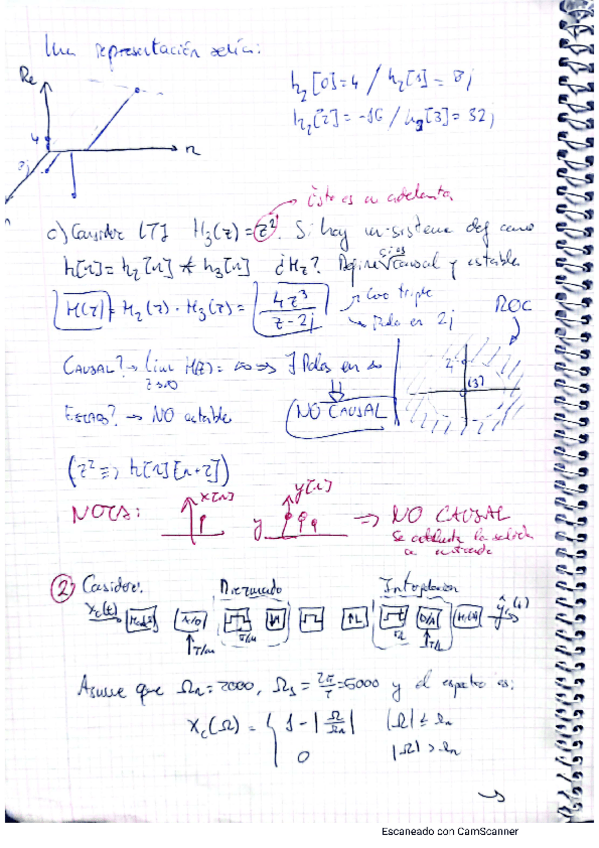 Una representación sería:
Re
h₂[0]=4 / h₂[1]= 8j
h₂[2]=-16 / h₂[3]= 32j
4
n
Esto es un adelanto
c) Considere LTI H₃(z)=z². Si hay un sistema def como
h[n]=h₂[n] * h₃[n] ¿Hz? Define si es causal y estable
H(z) = H₂(z) · H₃(z) = 4z³ / z-2j
Cero triple
Polo en 2j
ROC
CAUSAL? → lim H(z) = ∞ ⇒ ∃ Polos en ∞
z→∞
NO CAUSAL
(3)
→ NO estable
(z² ≡ h[n][n+2])
NOTA: x[n] y y[n] ⇒ NO CAUSAL
Se adelanta la salida
2 Considere:
Diezmado
Interpolación
x_c(t)
T/m
π/M
π/L
D/A
T/L
Asume que Ωn=2000, Ωs = 2π/T =5000 y el espectro es:
x_c(Ω) = { 1 - |Ω/Ωn| |Ω| ≤ Ωn
0 |Ω| > Ωn
Escaneado con CamScanner